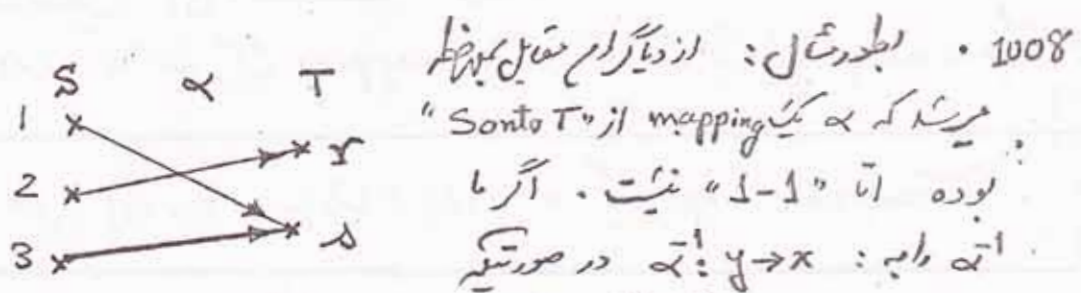 1008 · بطور مثال: از دیاگرام مقابل بملاحظه
میرسد که α یک mapping از "S onto T"
بوده اما "1-1" نیست. اگر ما
α⁻¹ را به: α⁻¹: y→x در صورتیکه
S α T
1
2 r
3 s